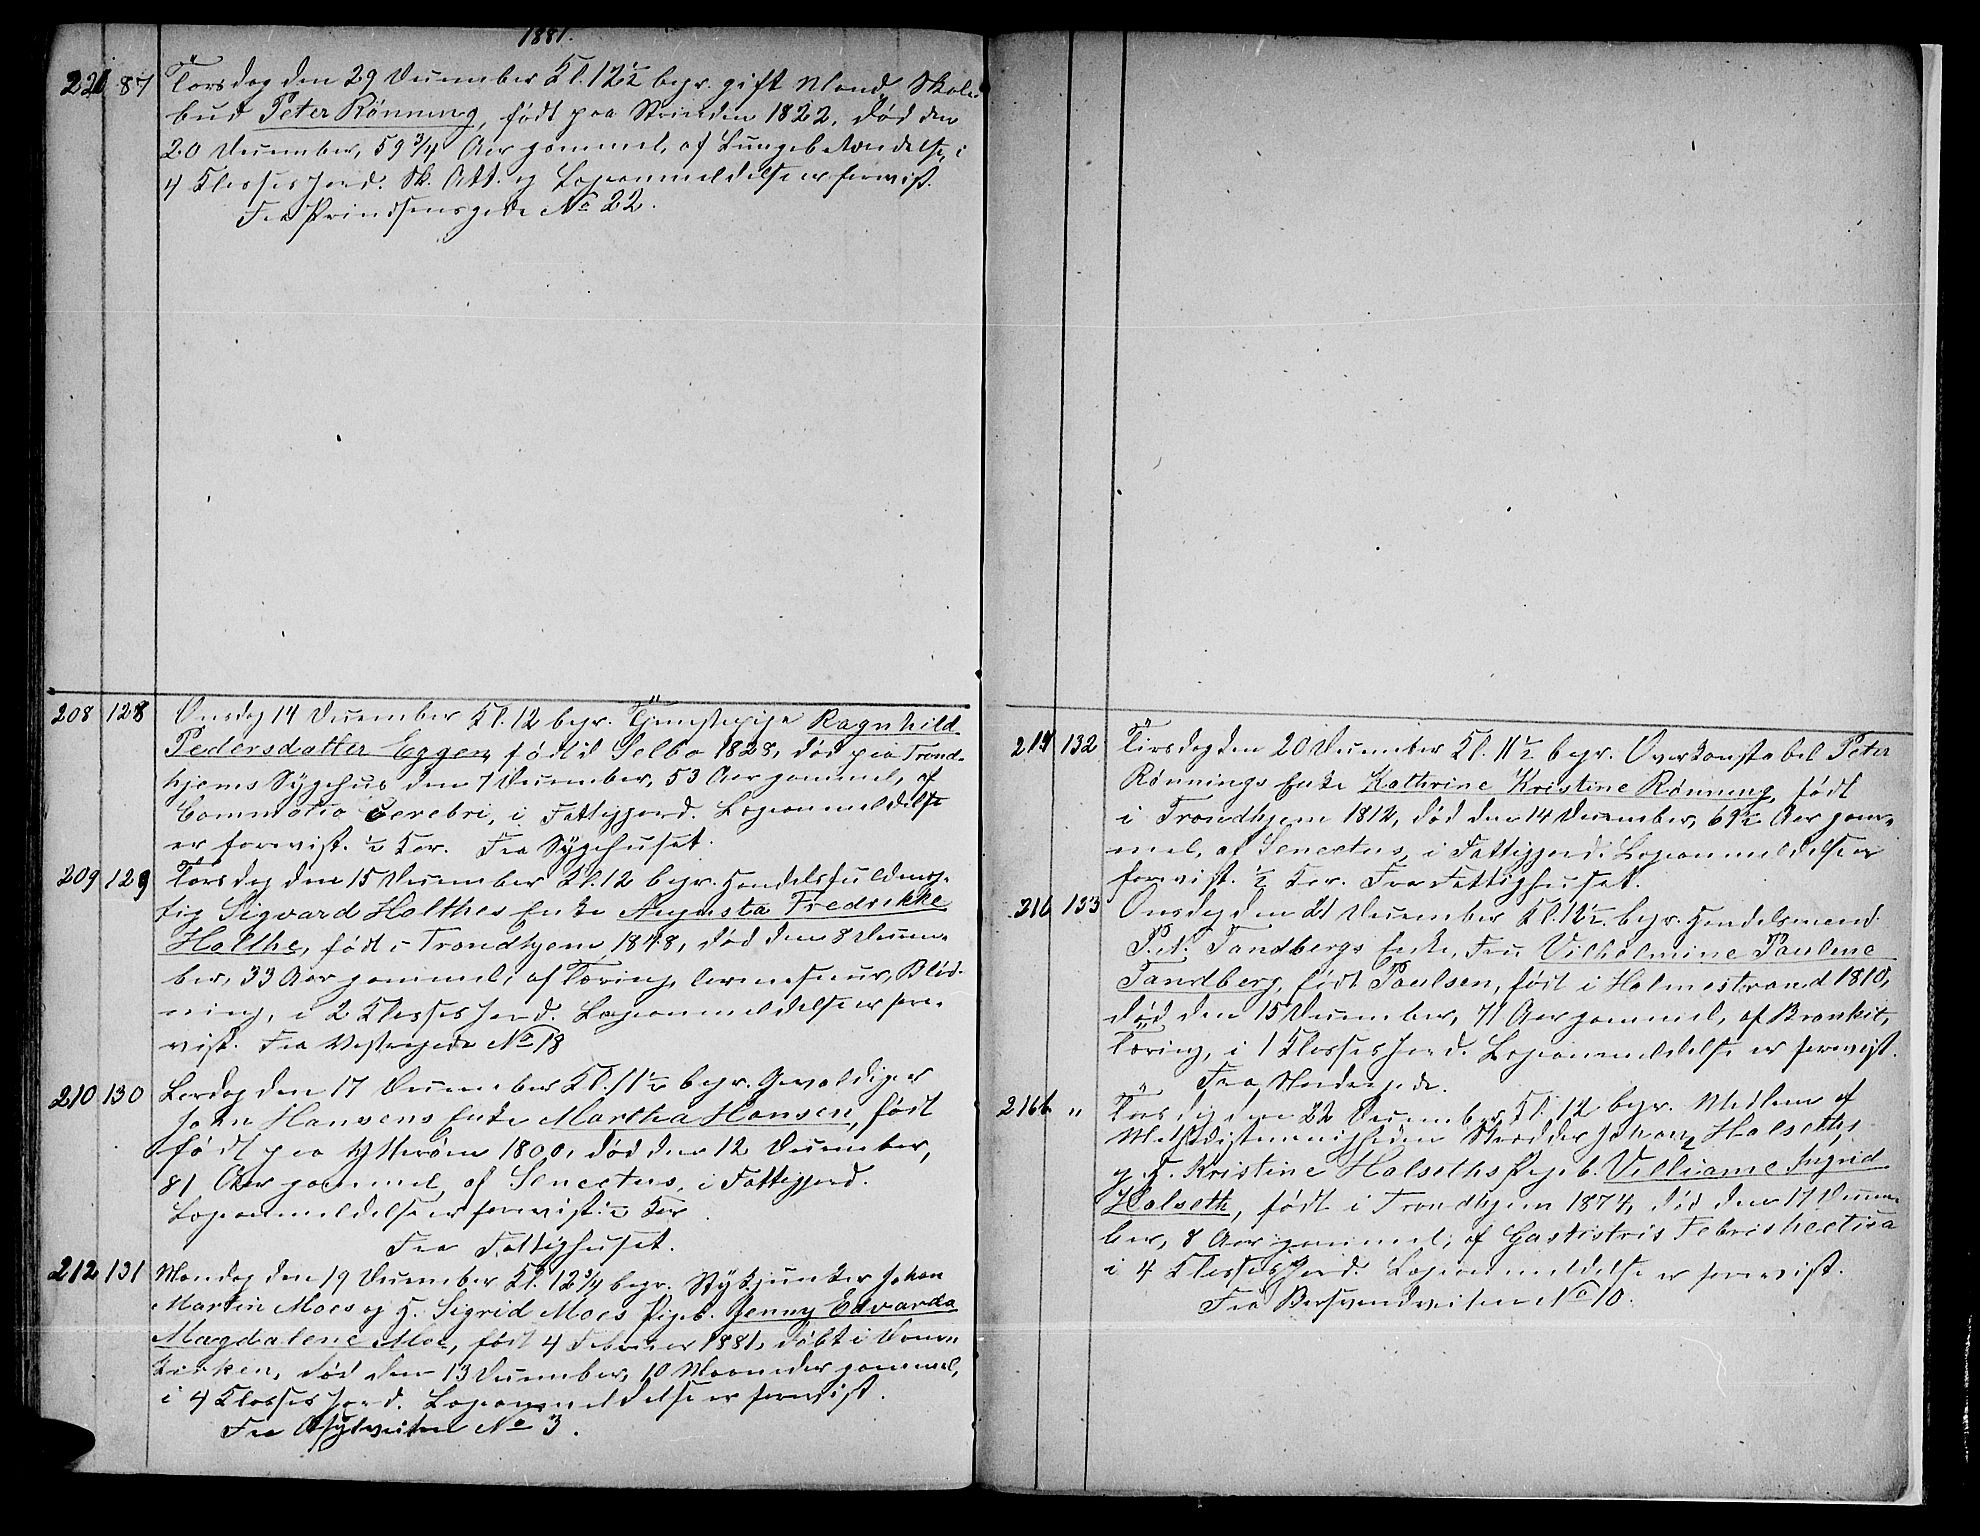 1881.
221 87 Torsdag den 29 December Kl. 12½ begr. gift Mand, Skole-
bud Peter Rönning, födt paa Strinden 1822, död den
20 December, 59¾ Aar gammel, af Lungebetændelse, i
4 Klasses Jord. Sk. Att. og Lægeanmeldelse er forevist.
Fra Prindsensgade No 22.
208 128 Onsdag 14 December Kl. 12 begr. Tjenestepige Ragnhild
Pedersdatter Eggen, född i Selbo 1828, död paa Trond-
hjems Sygehus den 7 December, 53 Aar gammel, af
Commotio Cerebri, i Fattigjord. Lægeanmeldelse
er forevist. ½ Kor. Fra Sygehuset.
209 129 Torsdag den 15 December Kl. 12 begr. Handelsfuldmæg-
tig Sigvard Holthes Enke Augusta Fredrikke
Holthe, födt i Trondhjem 1848, död den 8 Decem-
ber, 33 Aar gammel, af Tæring, Blöd-
ning, i 2 Klasses Jord. Lægeanmeldelse er fore-
vist. Fra Vestregade No 18
210 130 Lördag den 17 December Kl. 11½ begr. Gevaldiger
John Hansens Enke Martha Hansen, födt
födt paa Ytterøen 1800, död den 12 December,
81 Aar gammel, af Senectus, i Fattigjord.
Lægeanmeldelse er forevist. ½ Kor
Fra Fattighuset.
212 131 Mandag den 19 December Kl. 12¾ begr. Stykjunker Johan
Martin Moes og H. Sigrid Moes Pigeb. Jenny Edvarda
Magdalene Moe, födt 4 Februar 1881, döbt i Dom-
kirken, död den 13 December, 10 Maaneder gammel,
i 4 Klasses Jord. Lægeanmeldelse er forevist.
Fra Asylveiten No 3.
214 132 Tirsdag den 20 December Kl. 11½ begr. Overkonstabel Peter
Rönnings Enke Kathrine Kristine Rönning, födt
i Trondhjem 1812, död den 14 December, 69½ Aar gam-
mel, af Senectus, i Fattigjord. Lægeanmeldelse er
forevist. ½ Kor. Fra Fattighuset.
216 133 Onsdag den 21 December Kl. 12½ begr. Handelsmand
P. A. Tandbergs Enke, Fru Vilhelmine Pauline
Tandberg, födt Paulsen, födt i Holmestrand 1810,
död den 15 December, 71 Aar gammel, af Bronkit,
Tæring, i 1 Klasses Jord. Lægeanmeldelse er forevist.
Fra Nordregade.
216b " Torsdag den 22 December Kl. 12 begr. Medlem af
Methodistmenigheden Skrædder Johan Halseths
og H. Kristine Halseths Pigeb. Villiame Ingrid
Halseth, födt i Trondhjem 1874, död den 17 Decem-
ber, 8 Aar gammel, af Gastistris Febris hectica
i 4 Klasses Jord. Lægeanmeldelse er forevist.
Fra Bersvendveiten No 10.